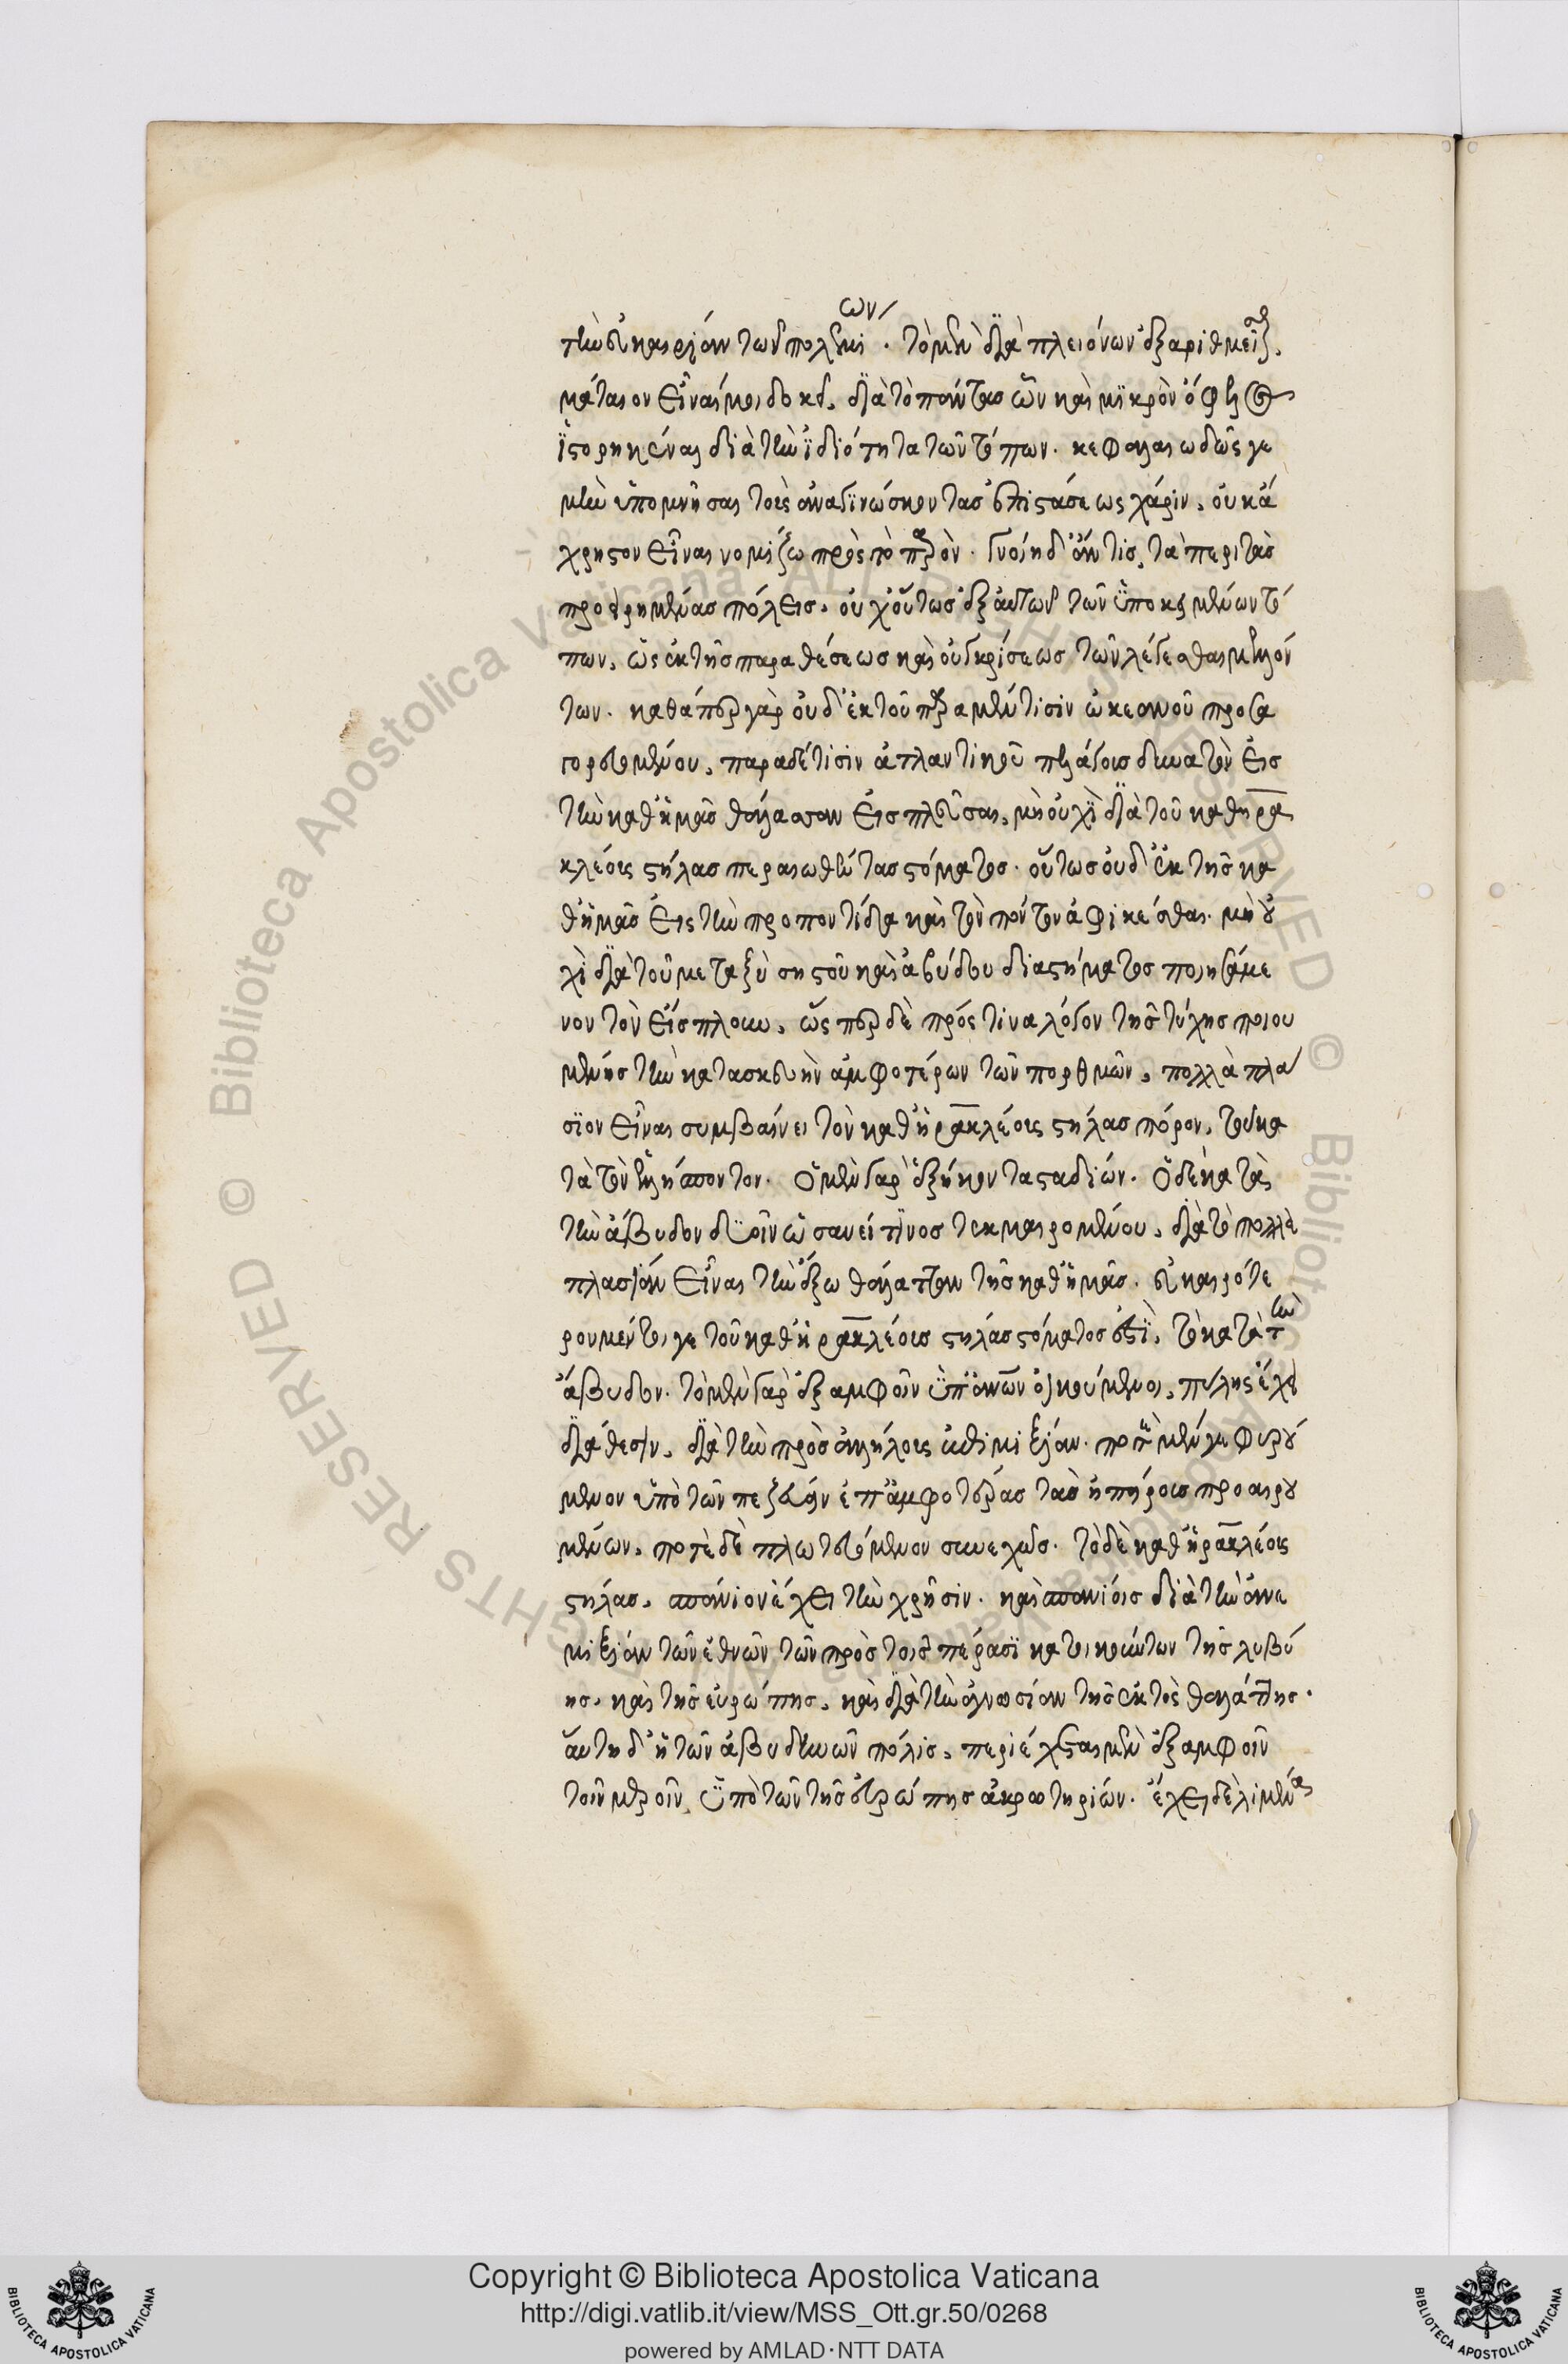 τὴν εὐκαιρίαν τῶν πολεμίων. τὸ μὲν διὰ πλειόνων ἐξαριθμεῖσθαι
μάταιον εἶναί μοι δοκεῖ, διὰ τὸ πάντας ὧν καὶ μικρὸν ὄφελος
ἱστορηκέναι διὰ τὴν ἰδιότητα τῶν τόπων. κεφαλαιωδῶς γε
μὴν ὑπομνῆσαι τοὺς ἀναγινώσκοντας ἐπιστάσεως χάριν, οὐκ ἄ
χρηστον εἶναι νομίζω πρὸς τὸ παρὸν. γνοίη δ' ἄν τις τὰ περὶ τὰς
προειρημένας πόλεις, οὐχ οὕτως ἐξ αὐτῶν τῶν ὑποκειμένων τό
πων, ὡς ἐκ τῆς παραθέσεως καὶ συγκρίσεως τῶν λέγεσθαι μελλόν
των. καθάπερ γὰρ οὐδ' ἐκ τοῦ παρὰ μέν τισιν ὠκεανοῦ προσα
γορευομένου, παρὰ δέ τισιν ἀτλαντικοῦ πελάγους δυνατὸν εἰς
τὴν καθ' ἡμᾶς θάλασσαν εἰσπλεῦσαι, μὴ οὐχὶ διὰ τοῦ καθ' ἡρα
κλέους στήλας περαιωθέντας στόματος. οὕτως οὐδ' ἐκ τῆς κα
θ' ἡμᾶς εἰς τὴν προποντίδα καὶ τὸν πόντον ἀφικέσθαι. μὴ οὐ
χὶ διὰ τοῦ μεταξὺ σηστοῦ καὶ ἀβύδου διαστήματος ποιησάμε
νον τὸν εἴσπλουν, ὥσπερ δὲ πρός τινα λόγον τῆς τύχης ποιου
μένης τὴν κατασκευὴν ἀμφοτέρων τῶν πορθμῶν, πολλαπλά
σιον εἶναι συμβαίνει τὸν καθ' ἡρακλέους στήλας πόρον, τοῦ κα
τὰ τὸν ἑλλήσποντον. ὁ μὲν γὰρ ἑξήκοντα σταδίων. ὁ δὲ κατὰ
τὴν ἄβυδον δυοῖν ὡσανεί τινος τεκμαιρομένου, διὰ τὸ πολλα
πλασίαν εἶναι τὴν ἔξω θάλατταν τῆς καθ' ἡμᾶς. εὐκαιρότε
ρον μέντοι γε τοῦ καθ' ἡρακλέους στήλας στόματος ἐστὶ, τὸ κατὰ τὴν
ἄβυδον. τὸ μὲν γὰρ ἐξ ἀμφοῖν ὑπ' ἀνθρώπων οἰκούμενον, πύλης ἔχει
διάθεσιν, διὰ τὴν πρὸς ἀλλήλους ἐπιμιξίαν. ποτὲ μὲν γεφυρού
μενον ὑπὸ τῶν πεζεύειν ἐπ' ἀμφοτέρας τὰς ἠπείρους προαιρου
μένων, ποτὲ δὲ πλωτευόμενον συνεχῶς. τὸ δὲ καθ' ἡρακλέους
στήλας, σπάνιον ἔχει τὴν χρῆσιν. καὶ σπανίοις διὰ τὴν ἀνε
πιμιξίαν τῶν ἐθνῶν τῶν πρὸς τοῖς πέρασι κατοικούντων τῆς λυβύ
ης, καὶ τῆς εὐρώπης, καὶ διὰ τὴν ἀγνωσίαν τῆς ἐκτὸς θαλάττης.
αὕτη δ' ἡ τῶν ἀβυδηνῶν πόλις, περιέχεται μὲν ἐξ ἀμφοῖν
τοῖν μεροῖν, ὑπὸ τῶν τῆς εὐρώπης ἀκρωτηρίων. ἔχει δὲ λιμένα
Copyright © Biblioteca Apostolica Vaticana
http://digi.vatlib.it/view/MSS_Ott.gr.50/0268
powered by AMLAD·NTT DATA